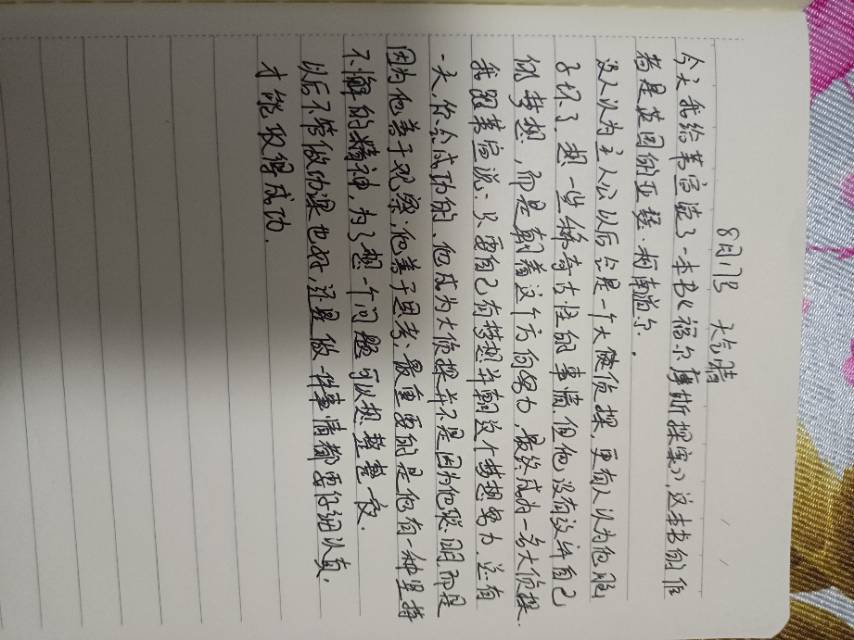 8月17号 天气晴
今天我给韦宣读了一本书《福尔摩斯探案》,这本书的作
者是英国的亚瑟·柯南道尔.
没人认为主人公以后会是一个大侦探,更有人认为他脑
子坏了,想一些稀奇古怪的事情.但他没有放弃自己
的梦想,而是朝着这个方向努力,最终成为一名大侦探.
我跟韦宣说:只要自己有梦想并朝这个梦想努力,总有
一天你会成功的.他成为大侦探并不是因为他聪明,而是
因为他善于观察,他善于思考.最重要的是他有一种坚持
不懈的精神,为了想一个问题可以想整整一夜.
以后不管做功课也好,还是做一件事情都要仔细认真,
才能取得成功.